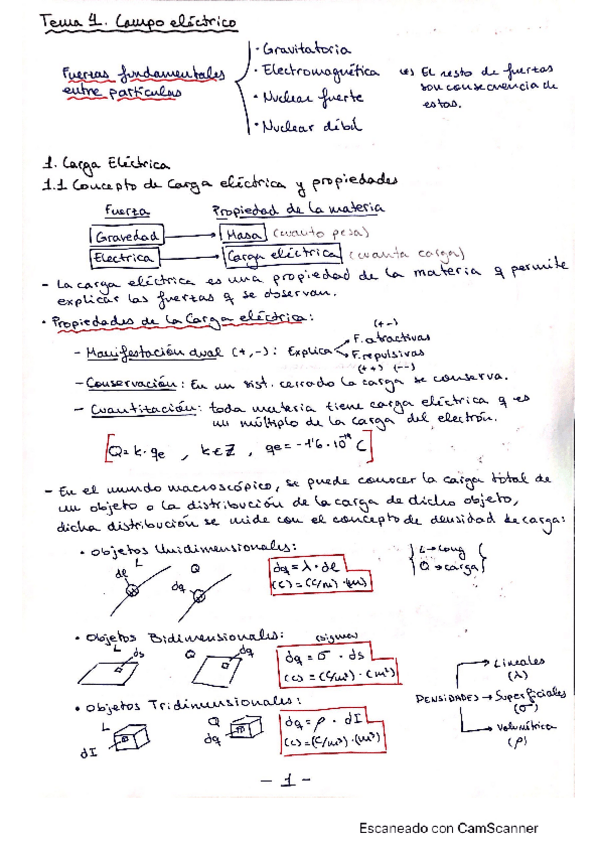 Tema 1. Campo eléctrico
Fuerzas fundamentales
entre partículas
· Gravitatoria
· Electromagnética
· Nuclear fuerte
· Nuclear débil
(*) El resto de fuerzas
son consecuencia de
estas.
1. Carga Eléctrica
1.1 Concepto de carga eléctrica y propiedades
Fuerza Propiedad de la materia
Gravedad → Masa (cuanto pesa)
Electrica → Carga eléctrica (cuanta carga)
- La carga eléctrica es una propiedad de la materia q permite
explicar las fuerzas q se observan.
· Propiedades de la Carga eléctrica:
- Manifestación dual (+,-): Explica
(+-)
F. atractivas
F. repulsivas
(++) (--)
- Conservación: En un sist. cerrado la carga se conserva.
- Cuantitación: toda materia tiene carga eléctrica q es
un múltiplo de la carga del electrón.
[Q = k · qe , k ∈ Z , qe = -1'6 · 10⁻¹⁹ C]
- En el mundo macroscópico, se puede conocer la carga total de
un objeto o la distribución de la carga de dicho objeto,
dicha distribución se mide con el concepto de densidad de carga:
· Objetos Unidimensionales:
L
dl
Q
dq
dq = λ · dl
(C) = (C/m) · (m)
L → Long
Q → carga
· Objetos Bidimensionales:
(sigma)
L
ds
Q
dq
dq = σ · ds
(C) = (C/m²) · (m²)
· Objetos Tridimensionales:
L
dI
Q
dq
dq = ρ · dI
(C) = (C/m³) · (m³)
DENSIDADES
→ Lineales
(λ)
→ Superficiales
(σ)
→ Volumétrica
(ρ)
- 1 -
Escaneado con CamScanner